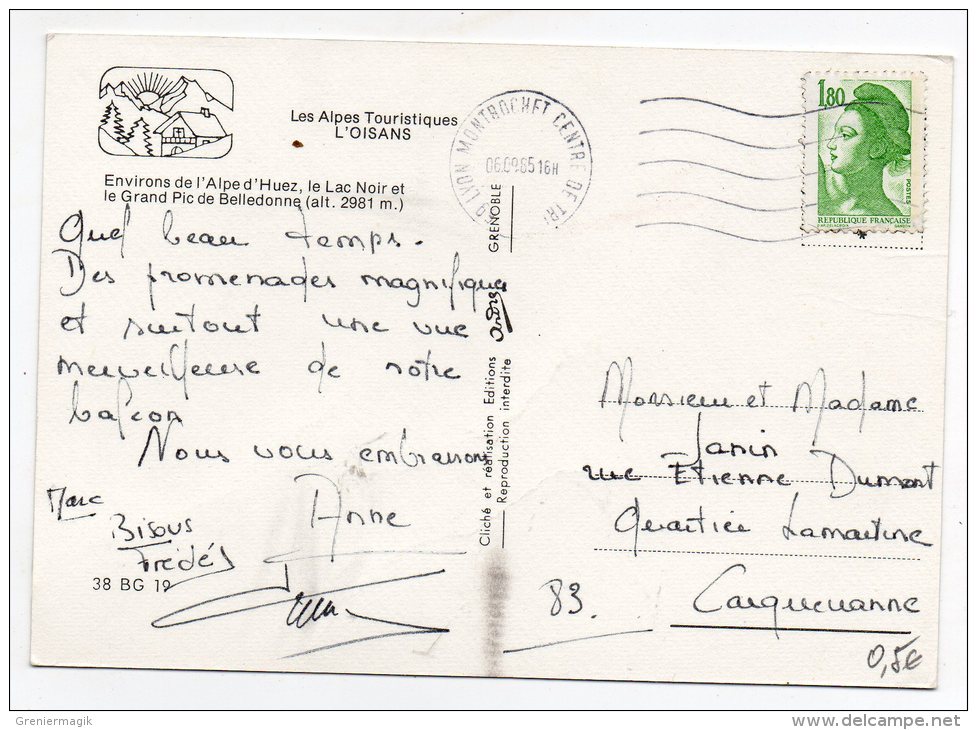 Les Alpes Touristiques
L'OISANS
Environs de l'Alpe d'Huez, le Lac Noir et
le Grand Pic de Belledonne (alt. 2981 m.)
Quel beau temps.
Des promenades magnifiques
et surtout une vue
merveilleuse de notre
balcon
Nous vous embrassons
Marc
Anne
Bisous
Frédé
38 BG 19
GRENOBLE
André
Cliché et réalisation Editions
Reproduction interdite
69 LYON MONTROCHET CENTRE DE TRI
06.09.85 16H
1,80
POSTES
RÉPUBLIQUE FRANÇAISE
Monsieur et Madame
Janin
rue Etienne Dumont
Quartier Lamartine
83.
Carqueiranne
0,5€
Greniermagik
www.delcampe.net